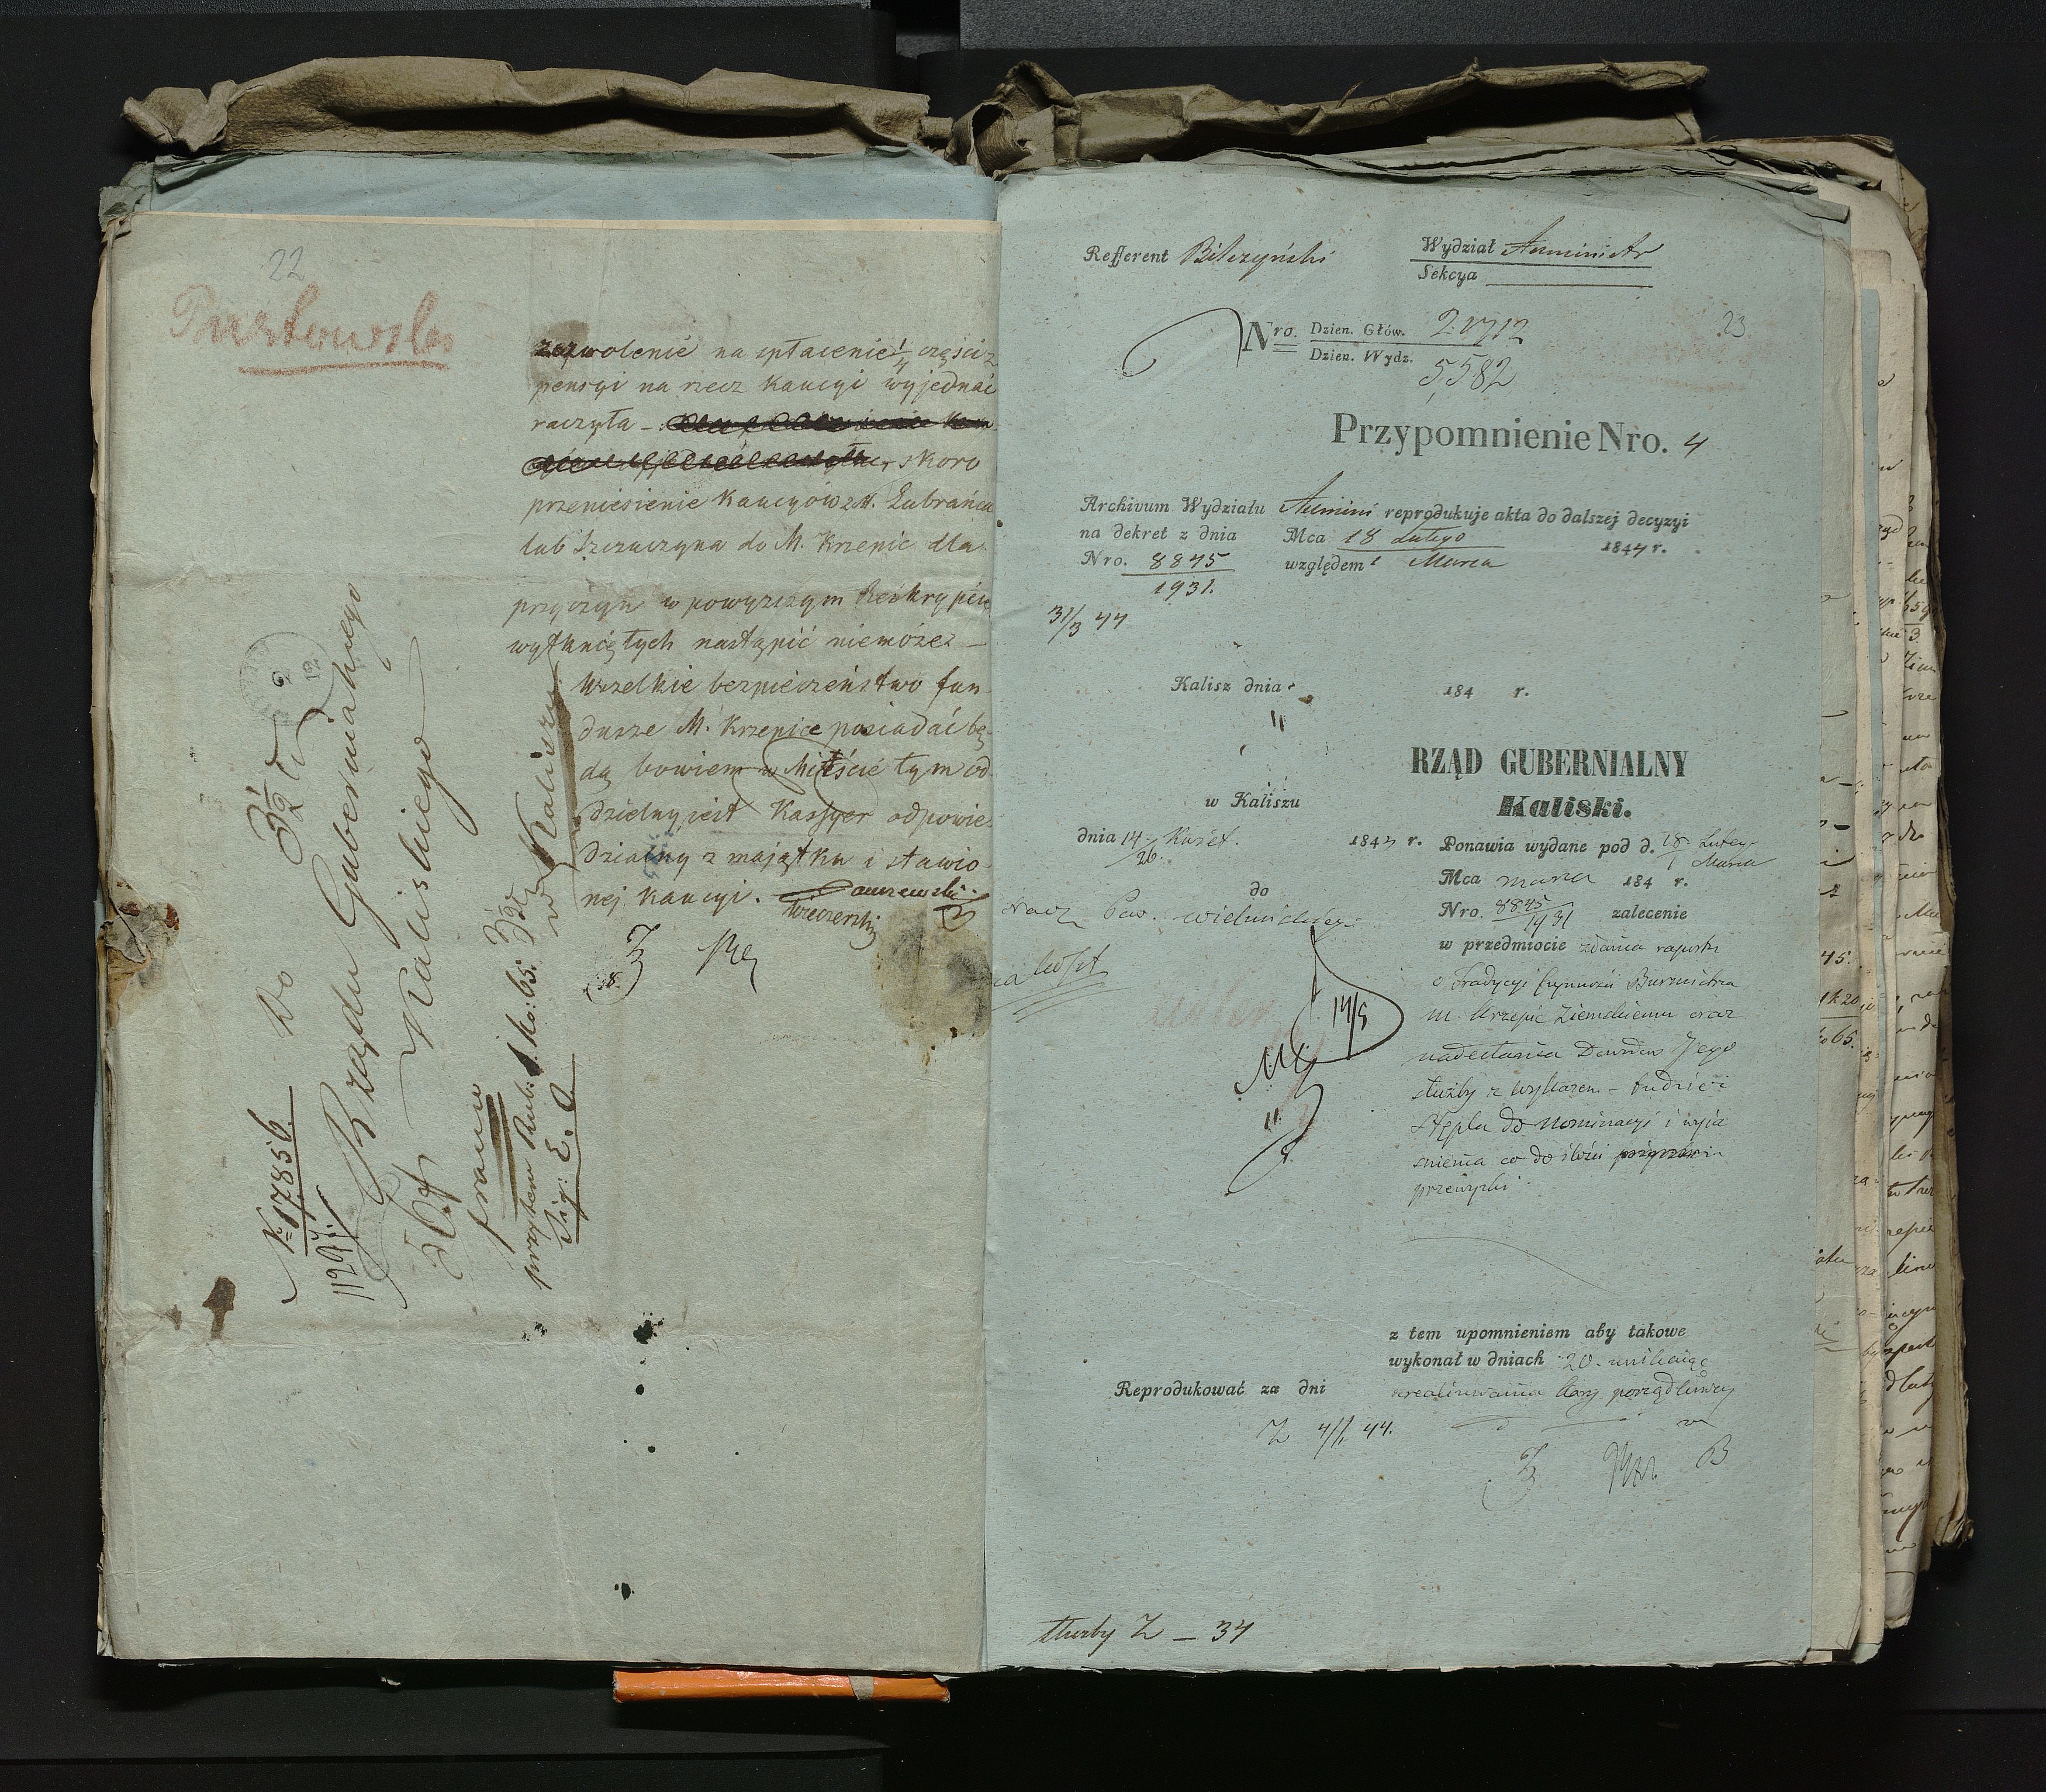 22
zezwolenie na spłacenie ¼ części z
pensyi na rzecz Kaucyi wyjednać
raczyła –
skoro
przeniesienie Kaucyów z M. Lubrańca
lub Szczuczyna do M. Krzepic dla
przyczyn w powyższym Reskrypcie
wytkniętych nastąpić niemoże –
Wszelkie bezpieczeństwo fun
dusze M. Krzepice posiadać bę
dą bowiem w Mieście tym od
dzielny jest Kassyer odpowie
dzialny z majątku i stawio
nej kaucyi.
Do
Rządu Gubernialnego
Kaliskiego
w Kaliszu
franco
przytem Rub. 1. Ko: 65.
N 17856
23
Refferent Bilczyński
Wydział Administr
Sekcya
Nro. Dzien. Głów.
Dzien. Wydz. 5,582
Przypomnienie Nro. 4
Archivum Wydziału Admini reprodukuje akta do dalszej decyzyi
na dekret z dnia Mca 18 Lutego 1844 r.
Nro. 8845 względem Marca
1931.
31/3 44
Kalisz dnia 184 r.
RZĄD GUBERNIALNY
Kaliski.
w Kaliszu
dnia 14/26 Kwiet. 1844 r.
do
Pow. Wieluńskiego
14/5
Ponawia wydane pod d. 18 Lutego
1 Marca
Mca marca 184 r.
Nro. 8845 zalecenie
1931
w przedmiocie zdania raportu
o tradycyi funduszu Burmistrza
m. Krzepic Ziemskiemu oraz
nadesłania Dowodów Jego
służby z wykazem – tudzież
Stępla do Nominacyi i wyja
śnienia co do ilości
przewyżki
z tem upomnieniem aby takowe
wykonał w dniach 20. unikając
zrealizowania kary porządkowej
Reprodukować za dni
służby Z – 34